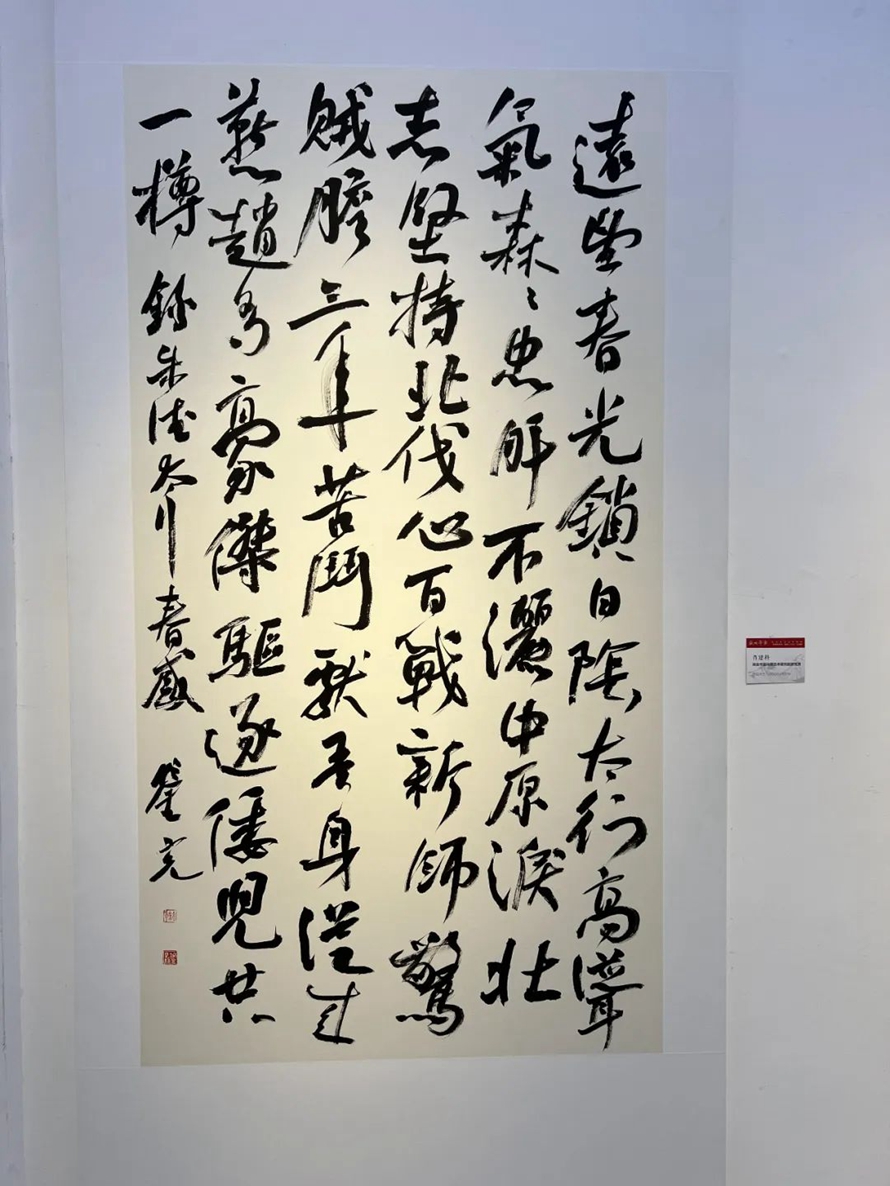 遠望春光鎖日陰太行高聳
氣森々忠肝不灑中原淚壯
志堅持北伐心百戰新師驚
賊膽三年苦鬥獻吾身從來
燕趙多豪傑驅逐倭兒共
一樽 錄朱德太行春感